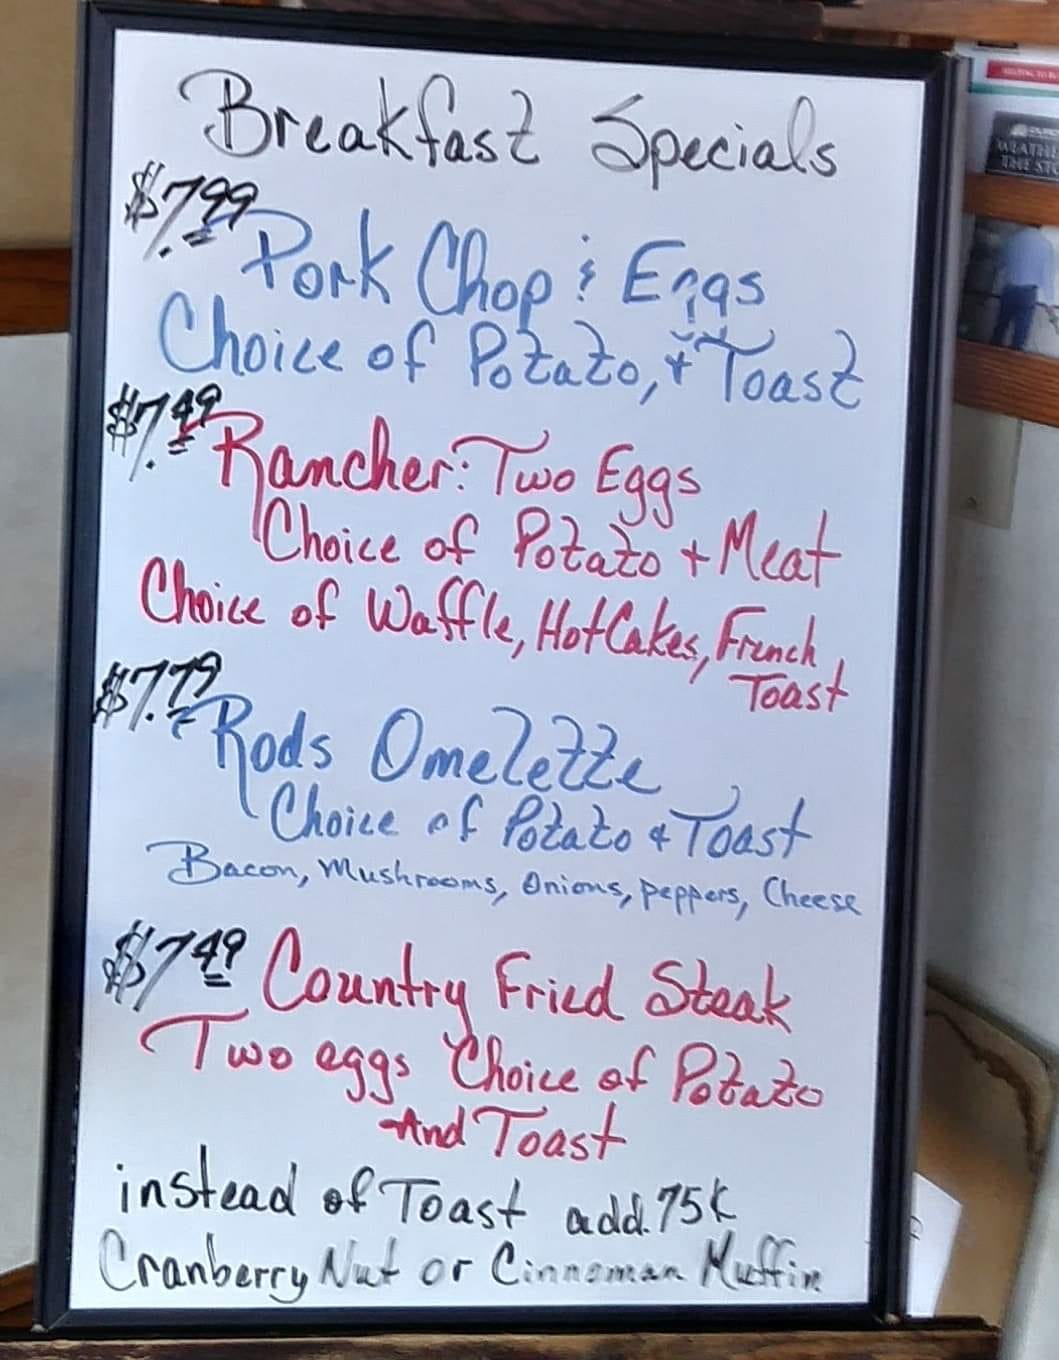 Breakfast Specials
$7.99
Pork Chop & Eggs
Choice of Potato, + Toast
$7.49
Rancher: Two Eggs
Choice of Potato + Meat
Choice of Waffle, HotCakes, French
Toast
$7.79
Rods Omelette
Choice of Potato & Toast
Bacon, Mushrooms, Onions, peppers, Cheese
$7.49 Country Fried Steak
Two eggs Choice of Potato
And Toast
instead of Toast add .75¢
Cranberry Nut or Cinnoman Muffin